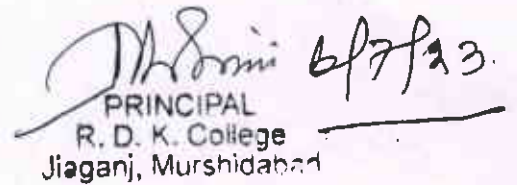 6/7/23.
PRINCIPAL
R. D. K. College
Jiaganj, Murshidabad